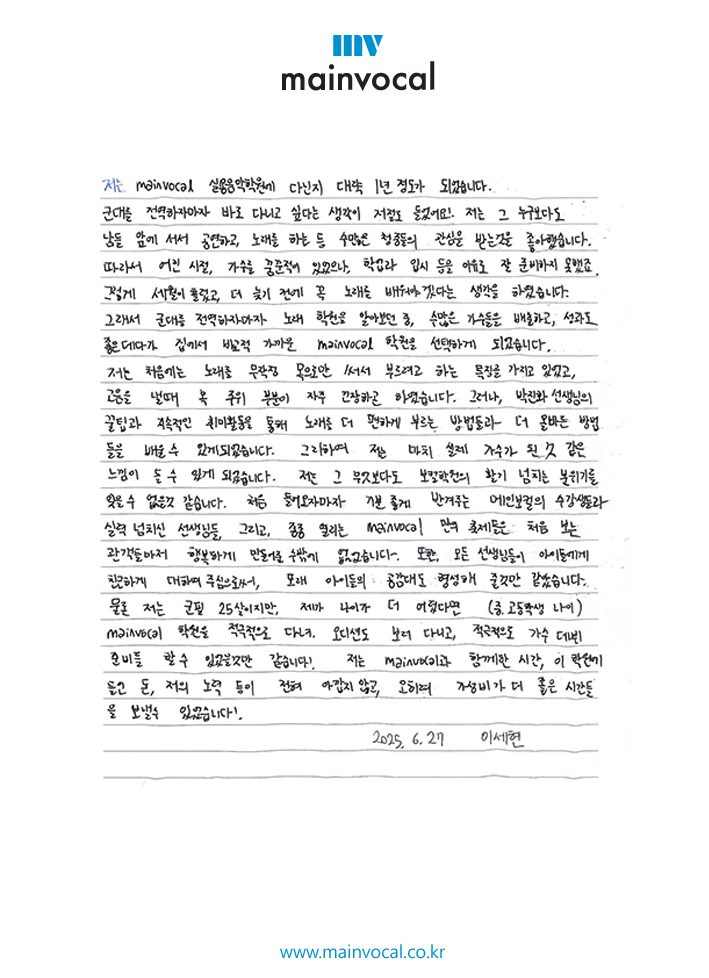 mv
mainvocal
저는 mainvocal 실용음악학원에 다닌지 대략 1년 정도가 되었습니다.
군대를 전역하자마자 바로 다니고 싶다는 생각이 저절도 들었어요!. 저는 그 누구보다도
남들 앞에 서서 공연하고, 노래를 하는 등 수많은 청중들의 관심을 받는것을 좋아했습니다.
따라서 어린 시절, 가수를 꿈꾼적이 있었으나, 학업과 입시 등을 이유로 잘 준비하지 못했죠.
그렇게 세월이 흘렀고, 더 늦기 전에 꼭 노래를 배워야겠다는 생각을 하였습니다.
그래서 군대를 전역하자마자 노래 학원을 알아보던 중, 수많은 가수들을 배출하고, 성과도
좋은데다가 집에서 비교적 가까운 mainvocal 학원을 선택하게 되었습니다.
저는 처음에는 노래를 무작정 목으로만 써서 부르려고 하는 특징을 가지고 있었고,
고음을 낼때 목 주위 부분이 자주 긴장하곤 하였습니다. 그러나, 박진화 선생님의
꿀팁과 지속적인 취미활동을 통해 노래를 더 편하게 부르는 방법들과 더 올바른 방법
들을 배울수 있게되었습니다. 그리하여 저는 마치 실제 가수가 된 것 같은
느낌이 들 수 있게 되었습니다. 저는 그 무엇보다도 보컬학원의 활기 넘치는 분위기를
잊을수 없을것 같습니다. 처음 들어오자마자 기분 좋게 반겨주는 메인보컬의 수강생들과
실력 넘치신 선생님들, 그리고, 종종 열리는 mainvocal 만의 축제들은 처음 보는
관객들마저 행복하게 만들어줄 수밖에 없었습니다. 또한, 모든 선생님들이 아이들에게
친근하게 대하여 주심으로써, 또래 아이들의 공감대도 형성해 줄것만 같았습니다.
물론 저는 군필 25살이지만, 제가 나이가 더 어렸다면 (중.고등학생 나이)
mainvocal 학원을 적극적으로 다녀. 오디션도 보러 다니고, 적극적으로 가수 데뷔
준비를 할 수 있었을것만 같습니다!. 저는 mainvocal과 함께한 시간, 이 학원에
들인 돈, 저의 노력 등이 전혀 아깝지 않고, 오히려 가성비가 더 좋은 시간들
을 보낼수 있었습니다!.
2025. 6. 27 이세현
www.mainvocal.co.kr